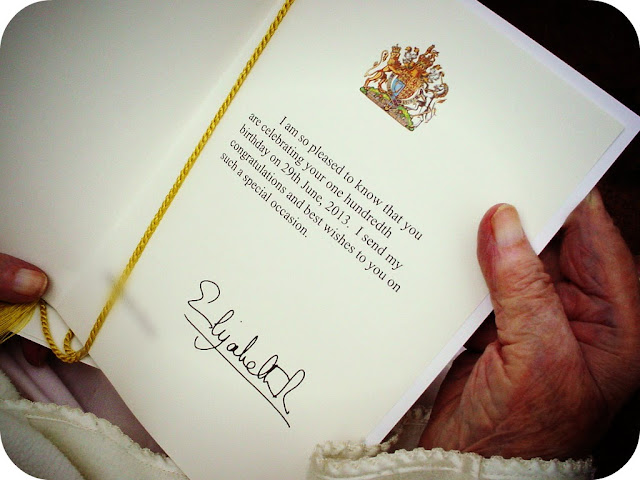 I am so pleased to know that you
are celebrating your one hundredth
birthday on 29th June, 2013. I send my
congratulations and best wishes to you on
such a special occasion.
Elizabeth R